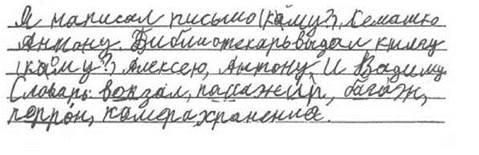 Я написал письмо (кому?), Семашко
Антону. Библиотекарь выдал книгу
(кому?) Алексею, Антону И Вадиму
Словарь: вокзал, пассажир, багаж,
перрон, камера хранения.